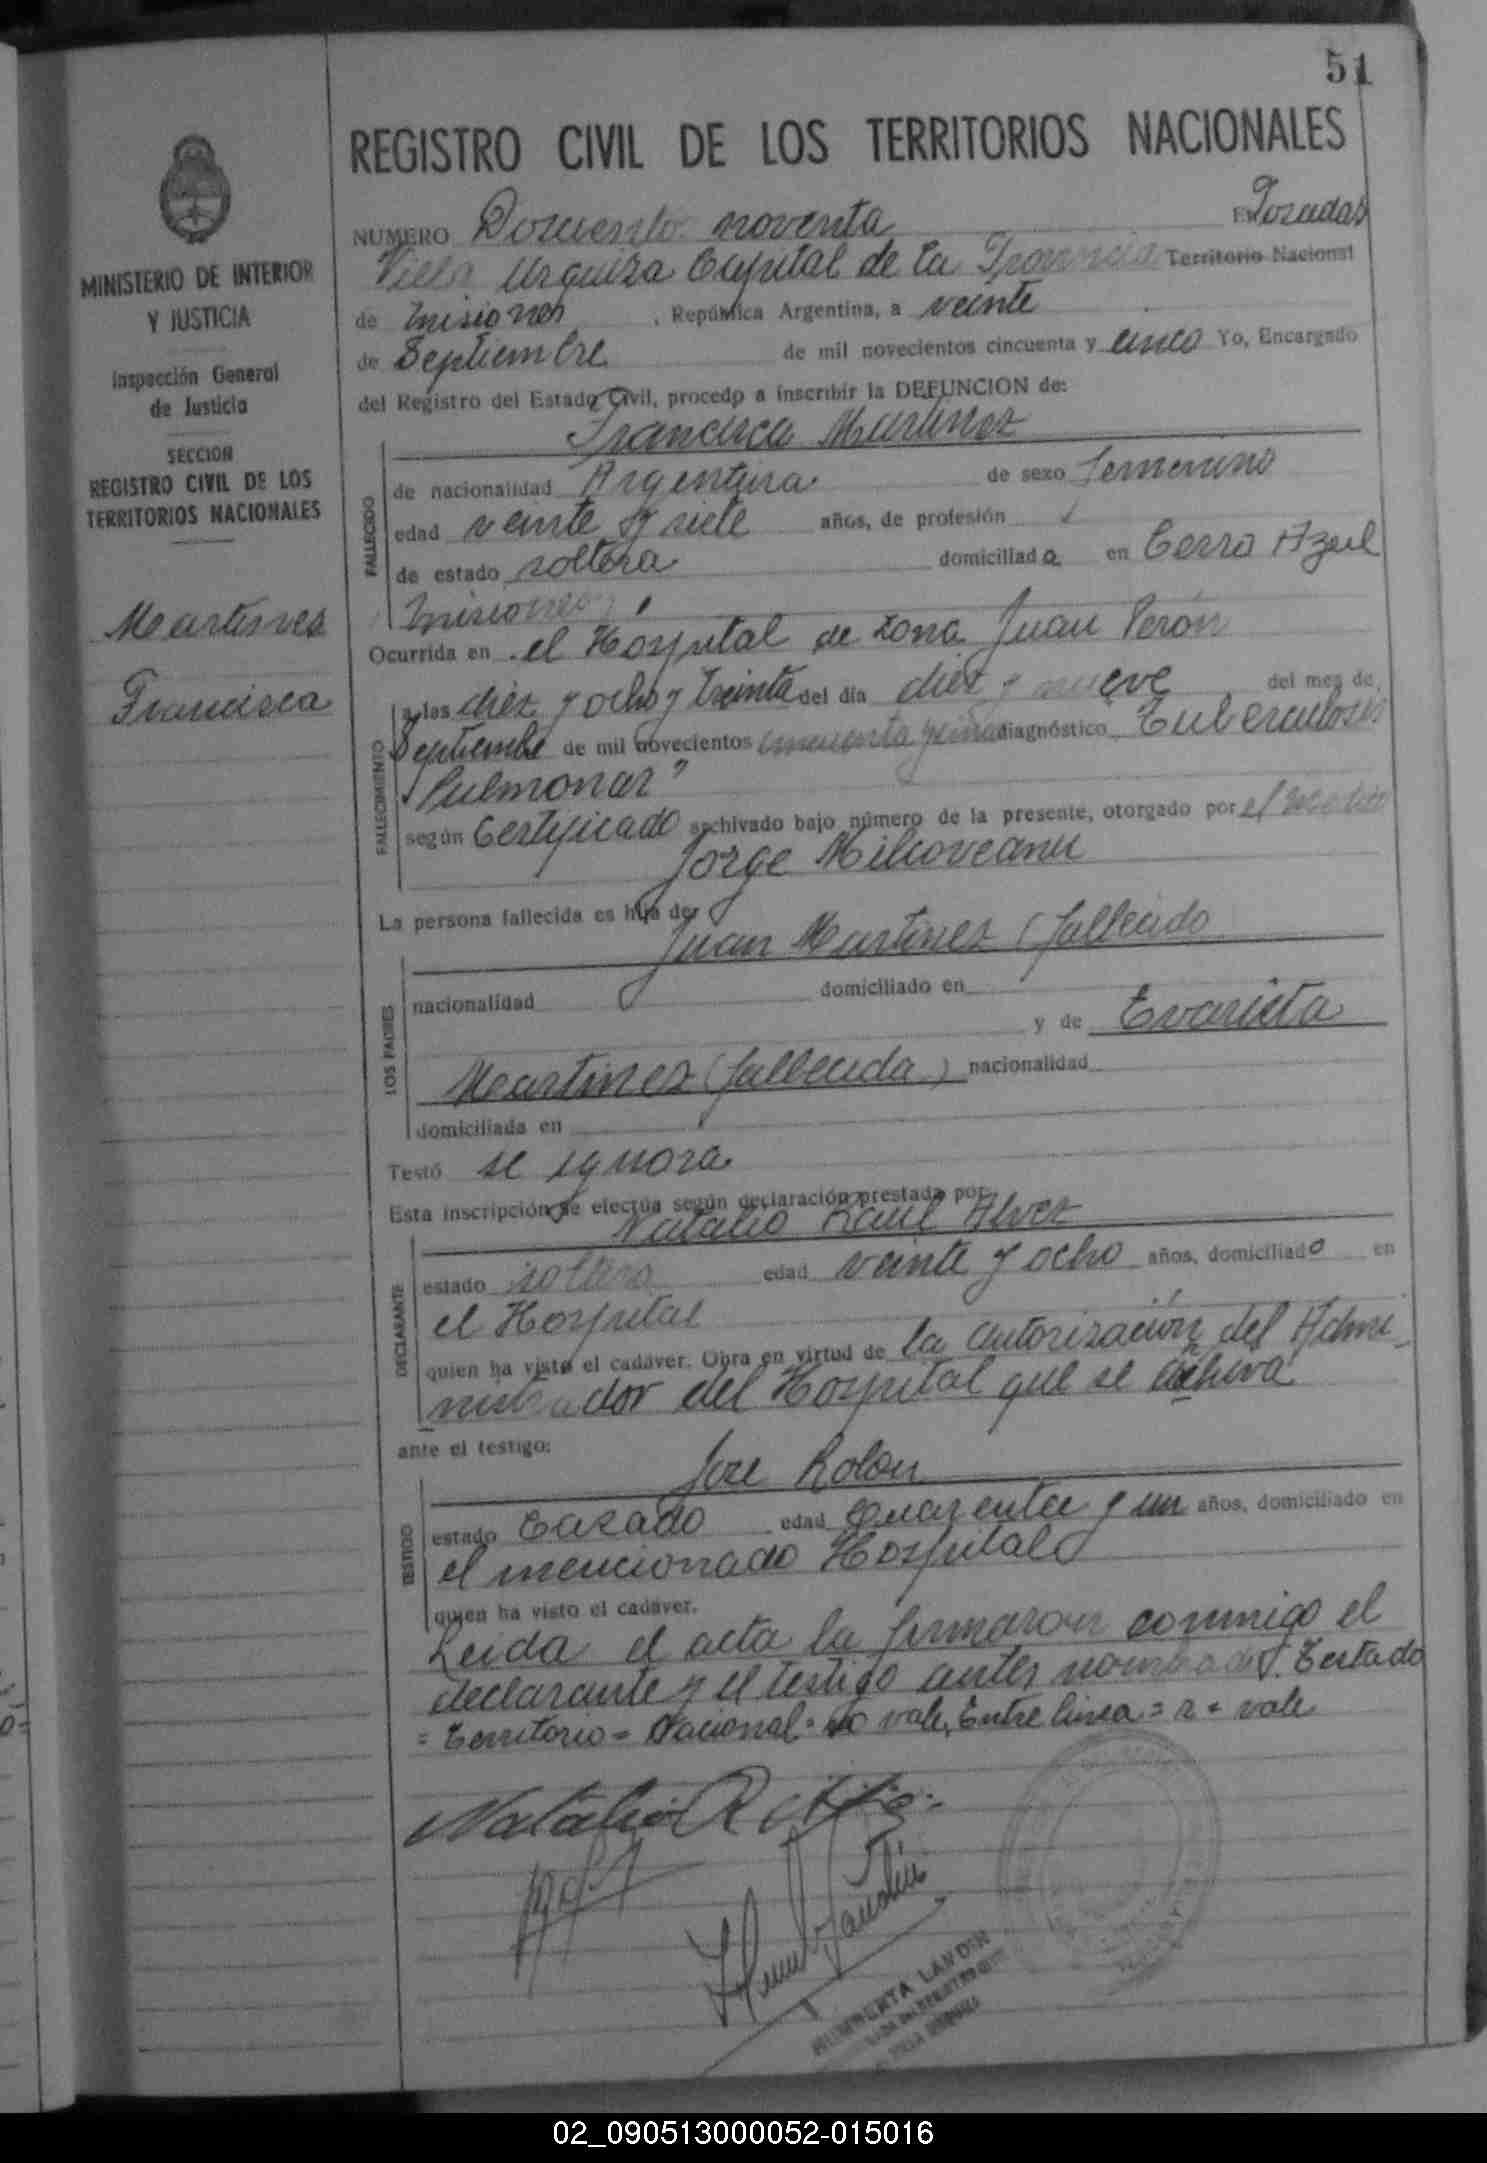 51
REGISTRO CIVIL DE LOS TERRITORIOS NACIONALES
MINISTERIO DE INTERIOR
Y JUSTICIA
Inspección General
de Justicia
SECCION
REGISTRO CIVIL DE LOS
TERRITORIOS NACIONALES
Martines
Francisca
NUMERO Doscientos noventa EN Posadas
Villa Urquiza Capital de la Provincia Territorio Nacional
de Misiones, República Argentina, a veinte
de Septiembre de mil novecientos cincuenta y cinco Yo, Encargado
del Registro del Estado Civil, procedo a inscribir la DEFUNCION de:
Francisca Martinez
FALLECIDO
de nacionalidad Argentina de sexo femenino
edad veinte y siete años, de profesión
de estado soltera domiciliada en Cerro Azul
Misiones
Ocurrida en el Hospital de zona Juan Perón
FALLECIMIENTO
a las diez y ocho y treinta del día diez y nueve del mes de
Septiembre de mil novecientos cincuenta y cinco diagnóstico Tuberculosis
Pulmonar"
según Certificado archivado bajo número de la presente, otorgado por el Medico
Jorge Milcoveanu
La persona fallecida es hija de:
LOS PADRES
Juan Martinez (fallecido
nacionalidad domiciliado en
y de Evarista
Martinez (fallecida) nacionalidad
domiciliada en
Testó se ignora
Esta inscripción se efectúa según declaración prestada por:
DECLARANTE
Natalio Raul Alvez
estado soltero edad veinte y ocho años, domiciliado en
el Hospital
quien ha visto el cadáver. Obra en virtud de la autorización del Admi-
nistrador del Hospital que se archiva
ante el testigo:
TESTIGO
Jose Rolon
estado Casado edad cuarenta y un años, domiciliado en
el mencionado Hospital
quien ha visto el cadáver.
Leida el acta la firmaron conmigo el
declarante y el testigo antes nombrados. Testado
= Territorio = Nacional = no vale, Entre linea = r = vale
Natalio R
LANDER
02_090513000052-015016